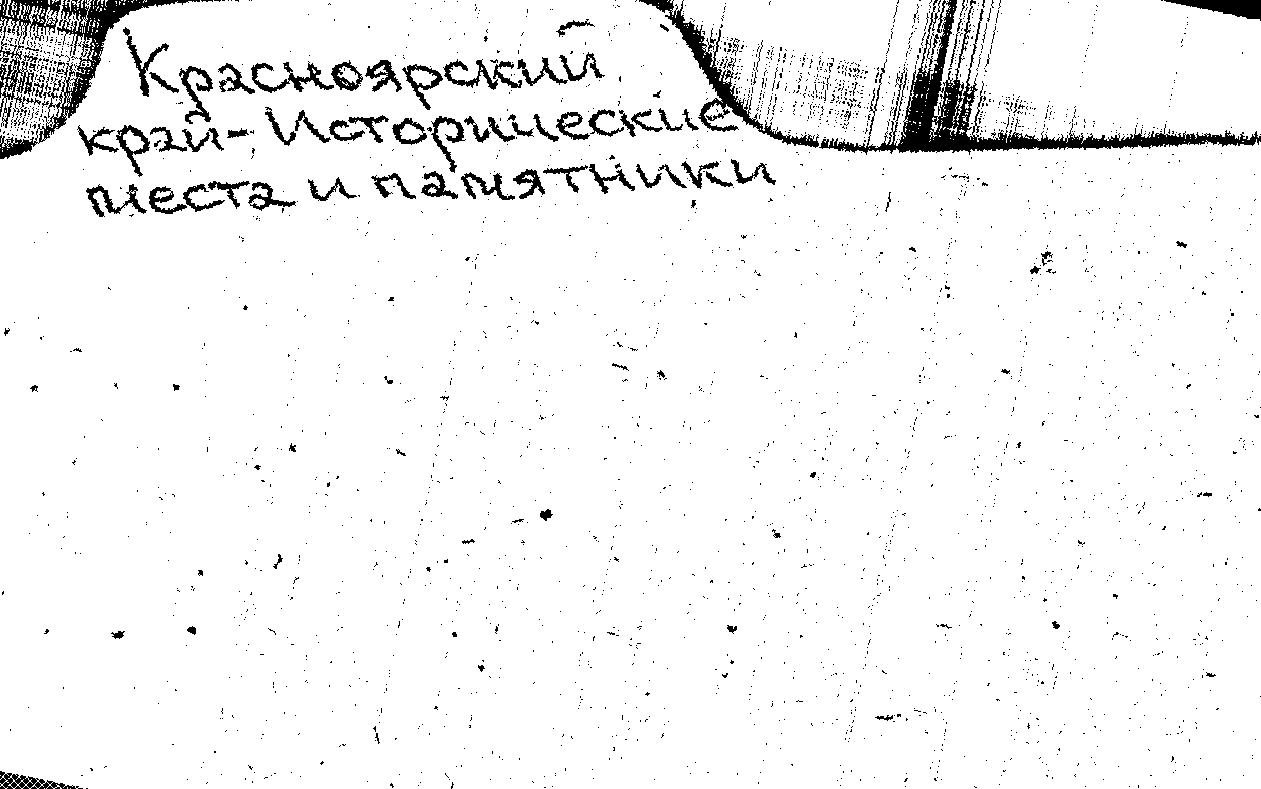 Красноярский
край- Исторические
места и памятники